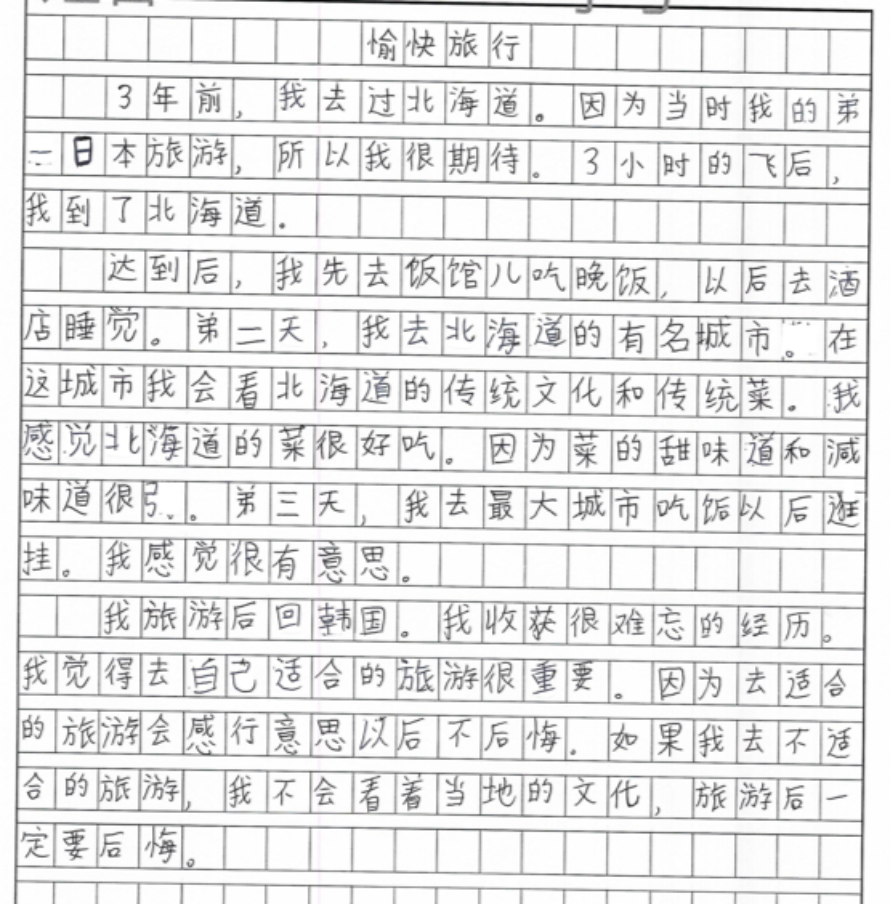 愉快旅行
3年前，我去过北海道。因为当时我的弟
一日本旅游，所以我很期待。3小时的飞后，
我到了北海道。
达到后，我先去饭馆儿吃晚饭，以后去酒
店睡觉。弟二天，我去北海道的有名城市。在
这城市我会看北海道的传统文化和传统菜。我
感觉北海道的菜很好吃。因为菜的甜味道和减
味道很。弟三天，我去最大城市吃饭以后逛
挂。我感觉很有意思。
我旅游后回韩国。我收获很难忘的经历。
我觉得去自己适合的旅游很重要。因为去适合
的旅游会感行意思以后不后悔。如果我去不适
合的旅游，我不会看着当地的文化，旅游后一
定要后悔。